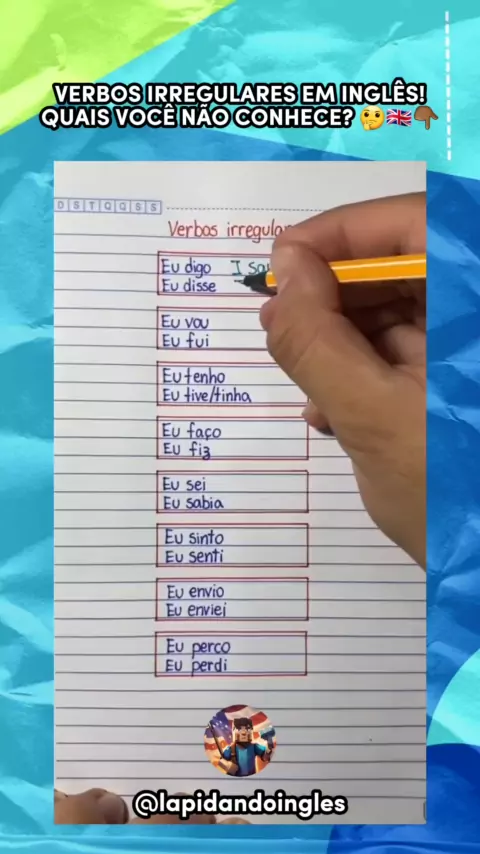 VERBOS IRREGULARES EM INGLÊS!
QUAIS VOCÊ NÃO CONHECE? 🤔🇬🇧👇🏾
D S T Q Q S S
Verbos
Eu digo I
Eu disse
Eu vou
Eu fui
Eu tenho
Eu tive/tinha
Eu faço
Eu fiz
Eu sei
Eu sabia
Eu sinto
Eu senti
Eu envio
Eu enviei
Eu perco
Eu perdi
@lapidandoingles